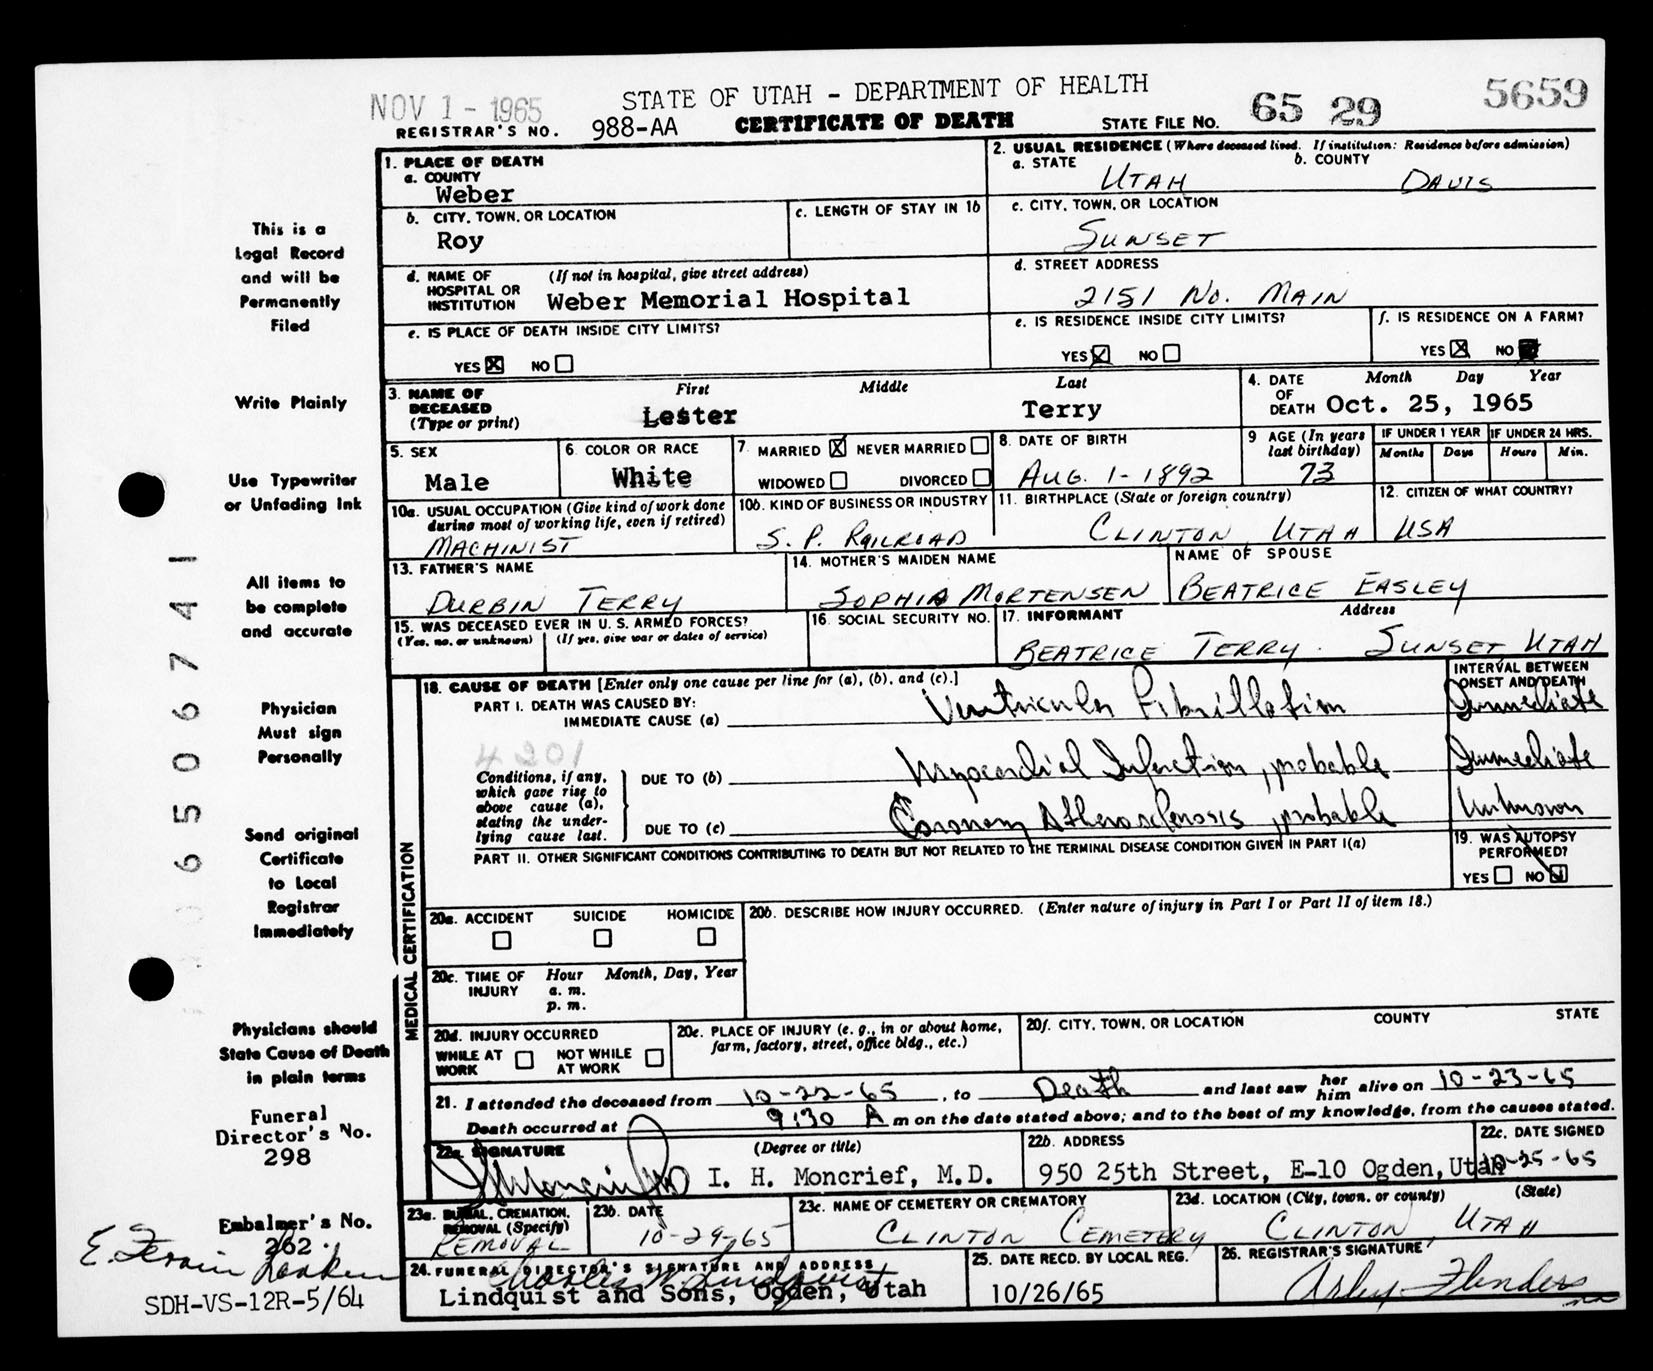 NOV 1 - 1965
STATE OF UTAH - DEPARTMENT OF HEALTH
5659
REGISTRAR'S NO. 988-AA
CERTIFICATE OF DEATH
STATE FILE NO. 65 29
1. PLACE OF DEATH
a. COUNTY
Weber
2. USUAL RESIDENCE (Where deceased lived. If institution: Residence before admission)
a. STATE
UTAH
b. COUNTY
DAVIS
b. CITY, TOWN, OR LOCATION
Roy
c. LENGTH OF STAY IN 1b
c. CITY, TOWN, OR LOCATION
SUNSET
d. NAME OF HOSPITAL OR INSTITUTION
(If not in hospital, give street address)
Weber Memorial Hospital
d. STREET ADDRESS
2151 NO. MAIN
e. IS PLACE OF DEATH INSIDE CITY LIMITS?
YES NO
e. IS RESIDENCE INSIDE CITY LIMITS?
YES NO
f. IS RESIDENCE ON A FARM?
YES NO
3. NAME OF DECEASED
(Type or print)
First Middle Last
Lester Terry
4. DATE OF DEATH
Month Day Year
Oct. 25, 1965
5. SEX
Male
6. COLOR OR RACE
White
7. MARRIED NEVER MARRIED
WIDOWED DIVORCED
8. DATE OF BIRTH
AUG. 1-1892
9 AGE (In years last birthday)
73
IF UNDER 1 YEAR
Months Days
IF UNDER 24 HRS.
Hours Min.
10a. USUAL OCCUPATION (Give kind of work done
during most of working life, even if retired)
MACHINIST
10b. KIND OF BUSINESS OR INDUSTRY
S. P. RAILROAD
11. BIRTHPLACE (State or foreign country)
CLINTON, UTAH
12. CITIZEN OF WHAT COUNTRY?
USA
13. FATHER'S NAME
DURBIN TERRY
14. MOTHER'S MAIDEN NAME
SOPHIA MORTENSEN
NAME OF SPOUSE
BEATRICE EASLEY
15. WAS DECEASED EVER IN U. S. ARMED FORCES?
(Yes, no, or unknown) (If yes, give war or dates of service)
16. SOCIAL SECURITY NO.
17. INFORMANT Address
BEATRICE TERRY. SUNSET, UTAH
MEDICAL CERTIFICATION
18. CAUSE OF DEATH [Enter only one cause per line for (a), (b), and (c).]
PART I. DEATH WAS CAUSED BY:
IMMEDIATE CAUSE (a) Ventricular Fibrillation
INTERVAL BETWEEN ONSET AND DEATH
Immediate
4201
Conditions, if any,
which gave rise to
above cause (a),
stating the under-
lying cause last.
DUE TO (b) Myocardial Infarction, probable
Immediate
DUE TO (c) Coronary Atherosclerosis, probable
Unknown
PART II. OTHER SIGNIFICANT CONDITIONS CONTRIBUTING TO DEATH BUT NOT RELATED TO THE TERMINAL DISEASE CONDITION GIVEN IN PART I(a)
19. WAS AUTOPSY PERFORMED?
YES NO
20a. ACCIDENT SUICIDE HOMICIDE
20b. DESCRIBE HOW INJURY OCCURRED. (Enter nature of injury in Part I or Part II of item 18.)
20c. TIME OF INJURY
Hour Month, Day, Year
a. m.
p. m.
20d. INJURY OCCURRED
WHILE AT WORK NOT WHILE AT WORK
20e. PLACE OF INJURY (e. g., in or about home,
farm, factory, street, office bldg., etc.)
20f. CITY, TOWN, OR LOCATION COUNTY STATE
21. I attended the deceased from 10-22-65, to Death and last saw her him alive on 10-23-65
Death occurred at 9:30 A m on the date stated above; and to the best of my knowledge, from the causes stated.
22a. SIGNATURE (Degree or title)
I. H. Moncrief, M.D.
22b. ADDRESS
950 25th Street, E-10 Ogden, Utah
22c. DATE SIGNED
10-25-65
23a. BURIAL, CREMATION, REMOVAL (Specify)
REMOVAL
23b. DATE
10-29-65
23c. NAME OF CEMETERY OR CREMATORY
CLINTON CEMETERY
23d. LOCATION (City, town, or county) (State)
CLINTON, UTAH
24. FUNERAL DIRECTOR'S SIGNATURE AND ADDRESS
Charles W. Lindquist
Lindquist and Sons, Ogden, Utah
25. DATE RECD. BY LOCAL REG.
10/26/65
26. REGISTRAR'S SIGNATURE
This is a
Legal Record
and will be
Permanently
Filed
Write Plainly
Use Typewriter
or Unfading Ink
All items to
be complete
and accurate
Physician
Must sign
Personally
Send original
Certificate
to Local
Registrar
Immediately
Physicians should
State Cause of Death
in plain terms
Funeral
Director's No.
298
Embalmer's No.
262
SDH-VS-12R-5/64
6506741